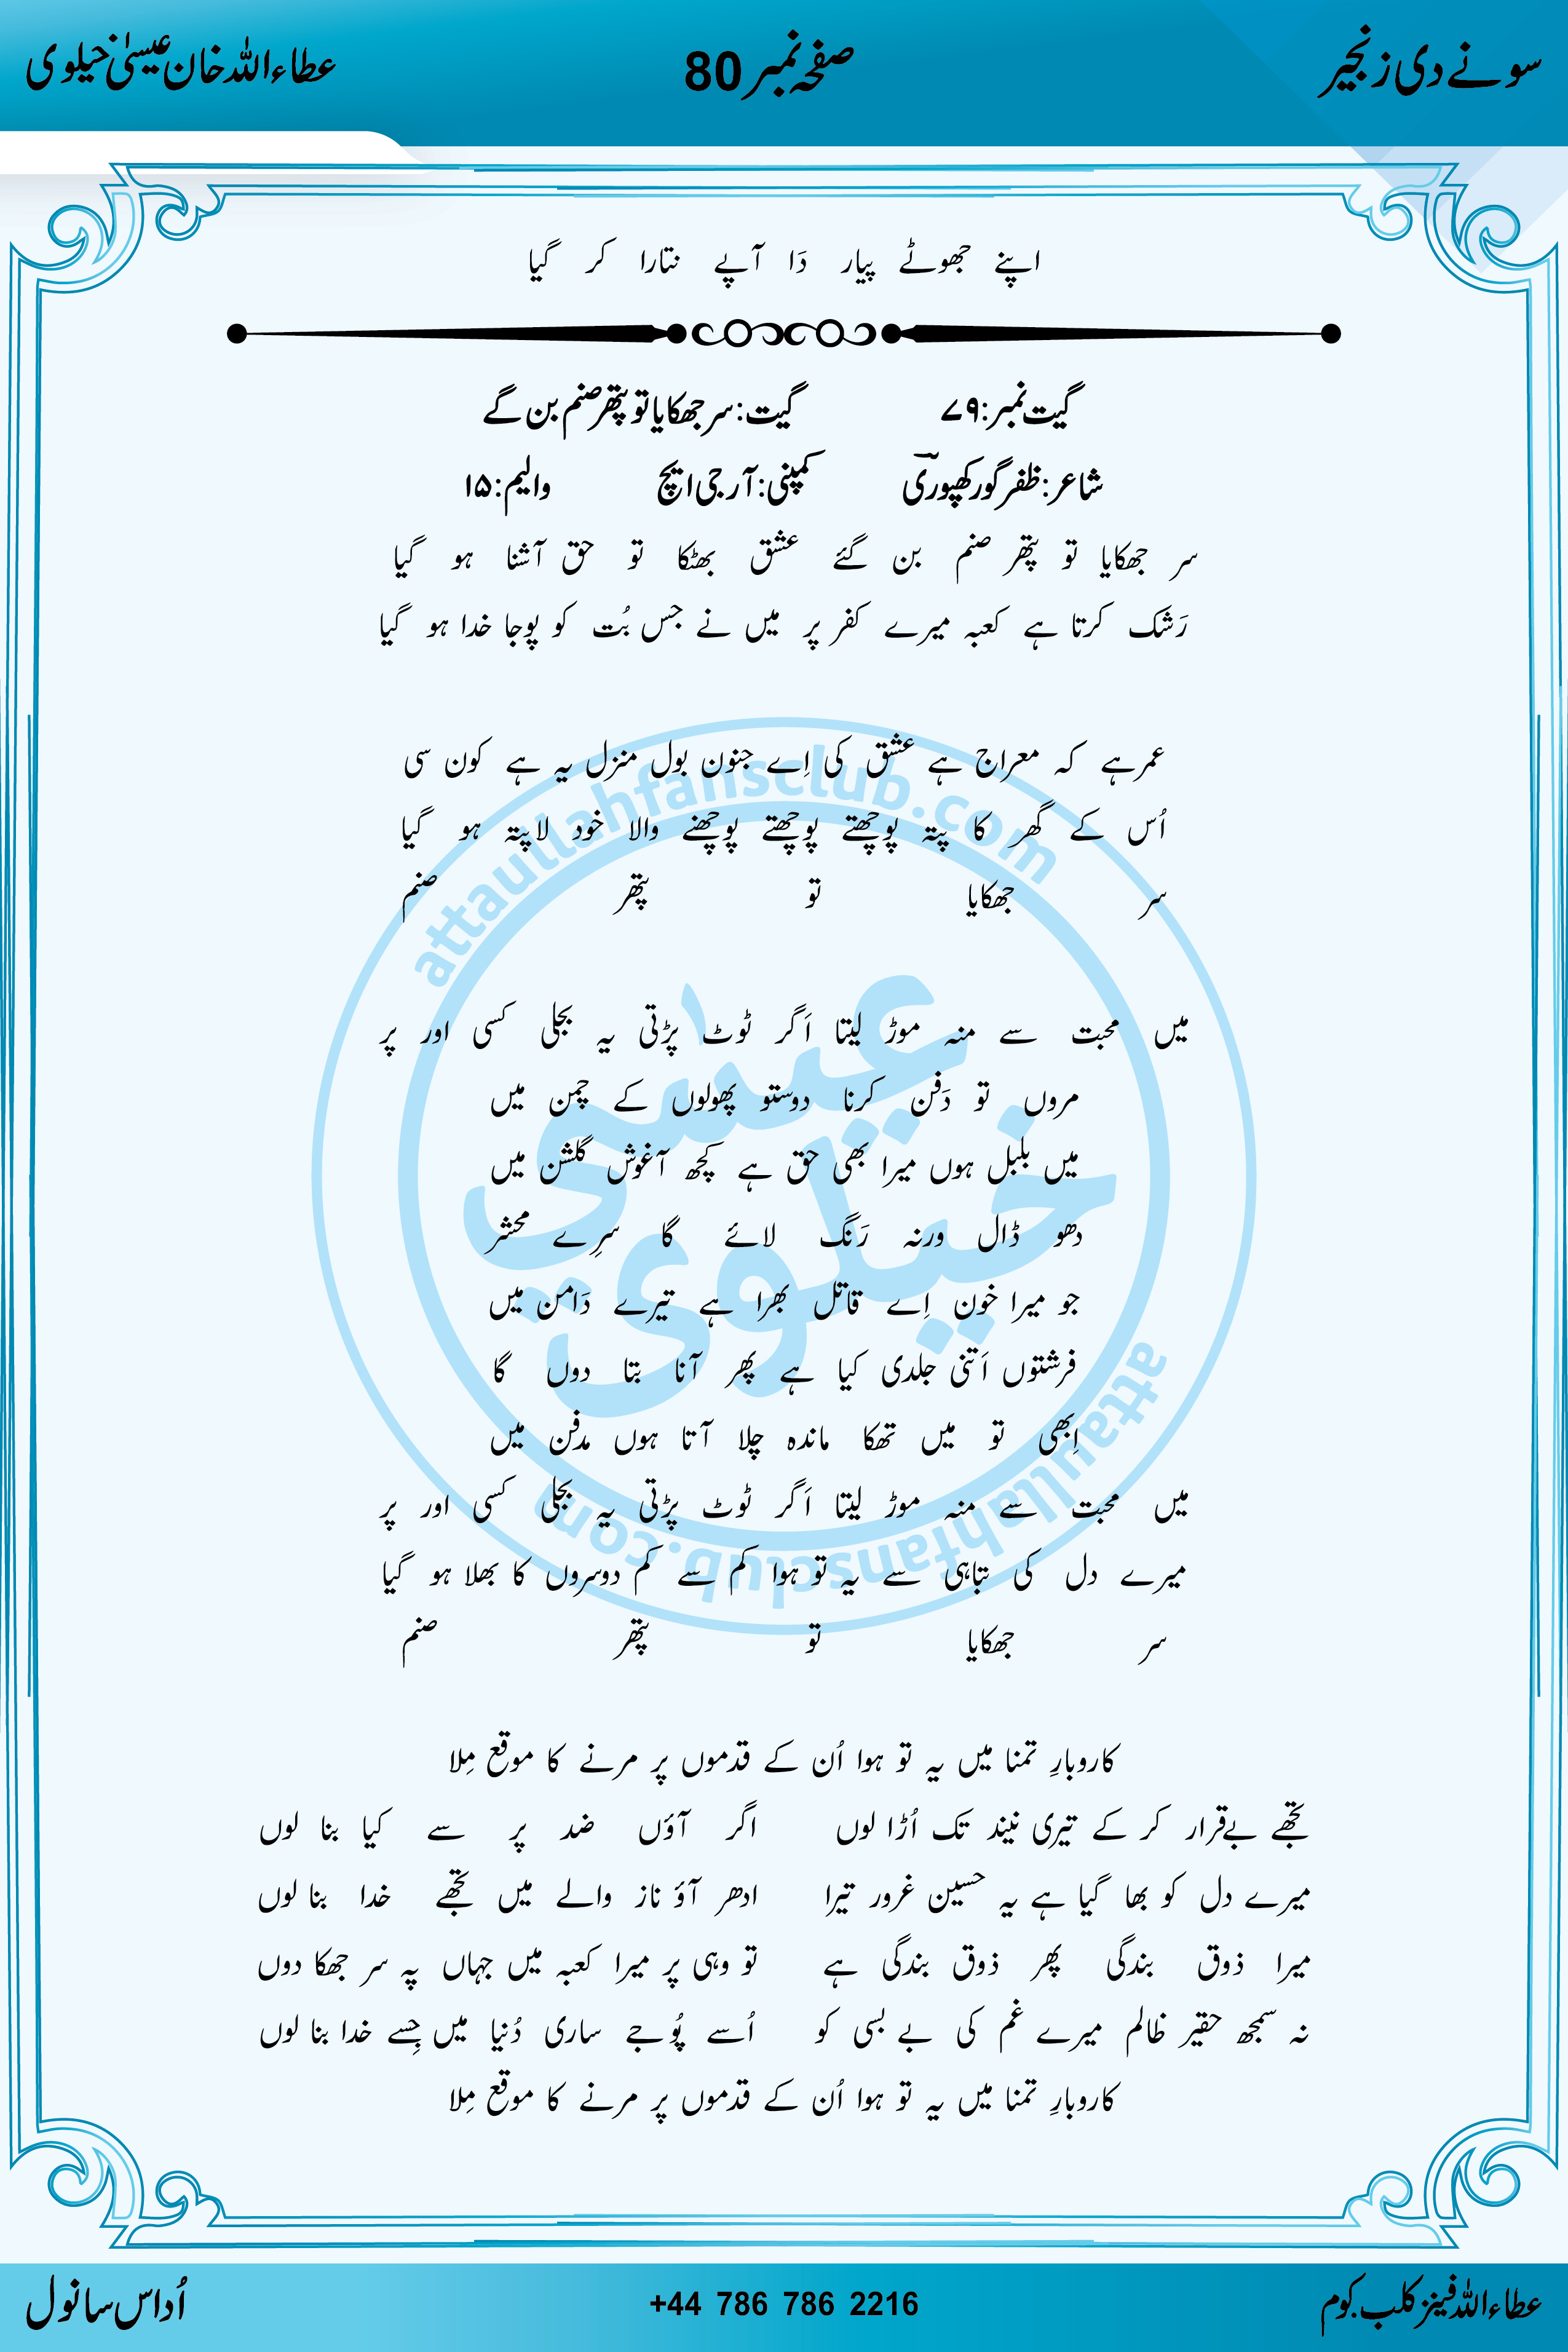 سونے دی زنجیر صفحہ نمبر 80 عطاءاللہ خان عیسیٰ خیلوی
اپنے جھوٹے پیار دَا آپے نتارا کر گیا
گیت نمبر: ۷۹ گیت: سر جھکایا تو پتھر صنم بن گے
شاعر: ظفر گورکھپوری کمپنی: آر جی ایچ والیم: ۱۵
سر جھکایا تو پتھر صنم بن گئے عشق بھٹکا تو حق آشنا ہو گیا
رَشک کرتا ہے کعبہ میرے کفر پر میں نے جس بُت کو پوجا خدا ہو گیا
عمرہے کہ معراج ہے عشق کی اِے جنون بول منزل یہ ہے کون سی
اُس کے گھر کا پتہ پوچھتے پوچھتے پوچھنے والا خود لاپتہ ہو گیا
سر جھکایا تو پتھر صنم
میں محبت سے منہ موڑ لیتا اَگر ٹوٹ پڑتی یہ بجلی کسی اور پر
مروں تو دَفن کرنا دوستو پھولوں کے چمن میں
میں بلبل ہوں میرا بھی حق ہے کچھ آغوش گلشن میں
دھو ڈال ورنہ رَنگ لائے گا سرِے محشر
جو میرا خون اِے قاتل بھرا ہے تیرے دَامن میں
فرشتوں اَتنی جلدی کیا ہے پھر آنا بتا دوں گا
اِبھی تو میں تھکا ماندہ چلا آتا ہوں مدفن میں
میں محبت سے منہ موڑ لیتا اَگر ٹوٹ پڑتی یہ بجلی کسی اور پر
میرے دل کی تباہی سے یہ تو ہوا کم سے کم دوسروں کا بھلا ہو گیا
سر جھکایا تو پتھر صنم
کاروبارِ تمنا میں یہ تو ہوا اُن کے قدموں پر مرنے کا موقع مِلا
تجھے بےقرار کر کے تیری نیند تک اُڑا لوں اگر آؤں ضد پر سے کیا بنا لوں
میرے دل کو بھا گیا ہے یہ حسین غرور تیرا ادھر آؤ ناز والے میں تجھے خدا بنا لوں
میرا ذوق بندگی پھر ذوق بندگی ہے تو وہی پر میرا کعبہ میں جہاں پہ سر جھکا دوں
نہ سمجھ حقیر ظالم میرے غم کی بے بسی کو اُسے پُوجے ساری دُنیا میں جِسے خدا بنا لوں
کاروبارِ تمنا میں یہ تو ہوا اُن کے قدموں پر مرنے کا موقع مِلا
attaullahfansclub.com
عیسٰی خیلوی
attaullahfansclub.com
عطاءاللہ فینز کلب.کوم +44 786 786 2216 اُداس سانول